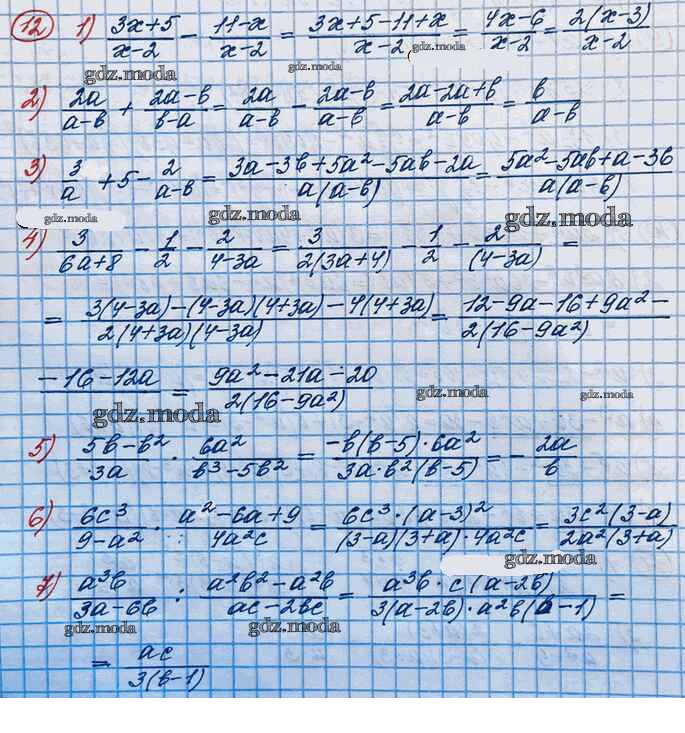 12 1) (3x+5)/(x-2) - (11-x)/(x-2) = (3x+5-11+x)/(x-2) = (4x-6)/(x-2) = 2(x-3)/(x-2)
gdz.moda gdz.moda gdz.moda
2) 2a/(a-b) + (2a-b)/(b-a) = 2a/(a-b) - (2a-b)/(a-b) = (2a-2a+b)/(a-b) = b/(a-b)
3) 3/a + 5 - 2/(a-b) = (3a-3b+5a²-5ab-2a)/(a(a-b)) = (5a²-5ab+a-3b)/(a(a-b))
gdz.moda gdz.moda gdz.moda
4) 3/(6a+8) - 1/2 - 2/(4-3a) = 3/(2(3a+4)) - 1/2 - 2/(4-3a) =
= (3(4-3a)-(4-3a)(4+3a)-4(4+3a))/(2(4+3a)(4-3a)) = (12-9a-16+9a²-)/(2(16-9a²))
(-16-12a) = (9a²-21a-20)/(2(16-9a²))
gdz.moda gdz.moda gdz.moda
5) (5b-b²)/(3a) · 6a²/(b³-5b²) = (-b(b-5)·6a²)/(3a·b²(b-5)) = - 2a/b
6) 6c³/(9-a²) · (a²-6a+9)/(4a²c) = (6c³·(a-3)²)/((3-a)(3+a)·4a²c) = (3c²(3-a))/(2a²(3+a))
gdz.moda
7) a³b/(3a-6b) : (a²b²-a²b)/(ac-2bc) = (a³b·c(a-2b))/(3(a-2b)·a²b(b-1)) =
gdz.moda gdz.moda
= ac/(3(b-1))